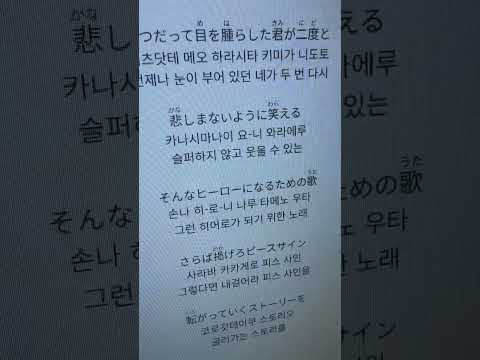 つだって目を腫らした君が二度と
츠닷테 메오 하라시타 키미가 니도토
눈이 부어 있던 네가 두 번 다시
悲しまないように笑える
카나시마나이 요-니 와라에루
슬퍼하지 않고 웃을 수 있는
そんなヒーローになるための歌
손나 히-로-니 나루 타메노 우타
그런 히어로가 되기 위한 노래
さらば掲げろピースサイン
사라바 카카게로 피스 사인
그렇다면 내걸어라 피스 사인을
転がっていくストーリーを
코로갓데이쿠 스토리오
굴러가는 스토리를